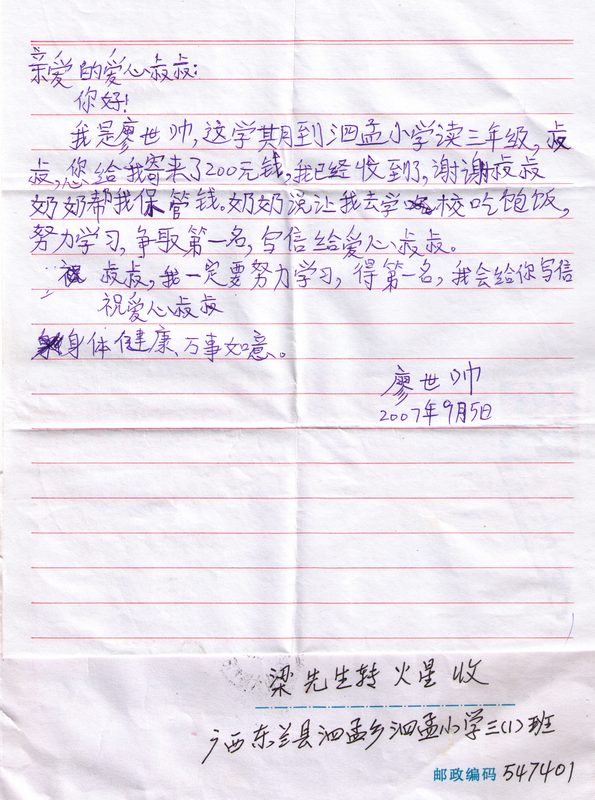 亲爱的爱心叔叔:
你好!
我是廖世帅,这学期到泗孟小学读三年级,叔
叔,您给我寄来了200元钱,我已经收到了,谢谢叔叔
奶奶帮我保管钱。奶奶说让我去学校吃饱饭,
努力学习,争取第一名,写信给爱心叔叔。
叔叔,我一定要努力学习,得第一名,我会给你写信
祝爱心叔叔
身体健康、万事如意。
廖世帅
2007年9月5日
梁先生转 火星 收
广西东兰县泗孟乡泗孟小学三(1)班
邮政编码 547401